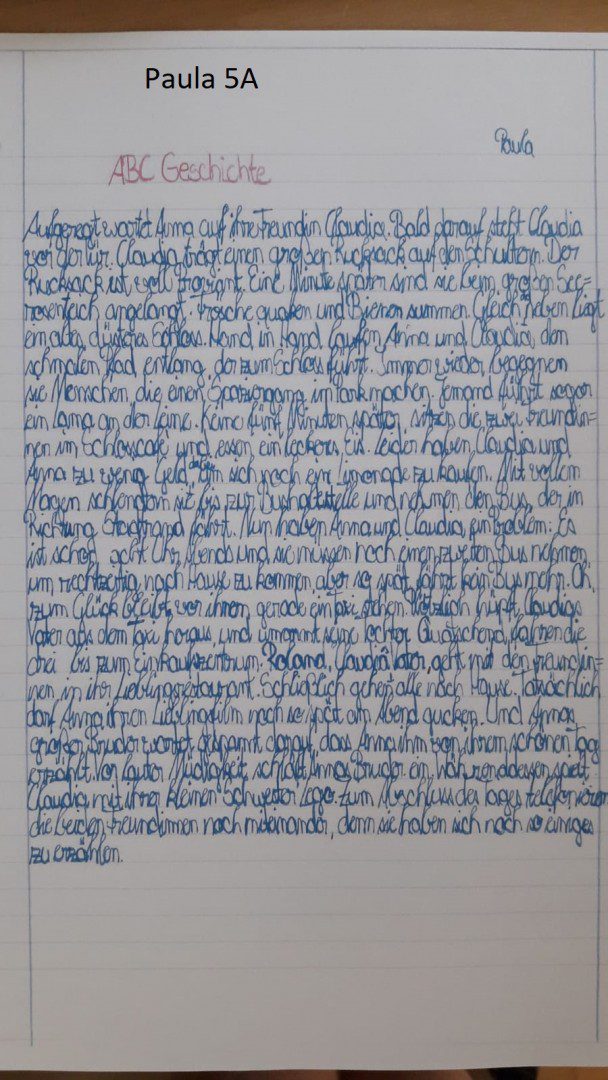 Paula 5A
Paula
ABC Geschichte
Aufgeregt wartet Anna auf ihre Freundin Claudia. Bald darauf steht Claudia
vor der Tür. Claudia trägt einen großen Rucksack auf den Schultern. Der
Rucksack ist voll Proviant. Eine Minute später sind sie beim großen See=
rosenteich angelangt. Frösche quaken und Bienen summen. Gleich neben liegt
ein altes, düsteres Schloss. Hand in Hand laufen Anna und Claudia, den
schmalen Pfad entlang, der zum Schloss führt. Immer wieder begegnen
sie Menschen, die einen Spaziergang im Park machen. Jemand führt sogar
ein Lama an der Leine. Keine fünf Minuten später sitzen die zwei Freundin=
nen im Schlosscafe und essen ein leckeres Eis. Leider haben Claudia und
Anna zu wenig Geld, um sich noch eine Limonade zu kaufen. Mit vollem
Magen schlendern sie bis zur Bushaltestelle und nehmen den Bus, der in
Richtung Stadtrand fährt. Nun haben Anna und Claudia, ein Problem: Es
ist schon acht Uhr Abends und sie müssen noch einen zweiten Bus nehmen,
um rechtzeitig nach Hause zu kommen aber so spät fährt kein Bus mehr. Oh,
zum Glück bleibt vor ihnen gerade ein Taxi stehen. Plötzlich hüpft Claudias
Vater aus dem Taxi heraus, und umarmt seine Tochter. Quatschend fahren die
drei bis zum Einkaufszentrum. Roland, Claudias Vater, geht mit den Freundin=
nen in ihr Lieblingsrestaurant. Schließlich gehen alle nach Hause. Tatsächlich
darf Anna ihren Lieblingsfilm noch so spät am Abend gucken. Und Annas
großer Bruder wartet gespannt darauf, dass Anna ihm von ihrem schönen Tag
erzählt. Vor lauter Müdigkeit schläft Annas Bruder ein. Währenddessen spielt
Claudia mit ihrer kleinen Schwester Lego. Zum Abschluss des Tages telefonieren
die beiden Freundinnen noch miteinander, denn sie haben sich noch so einiges
zu erzählen.